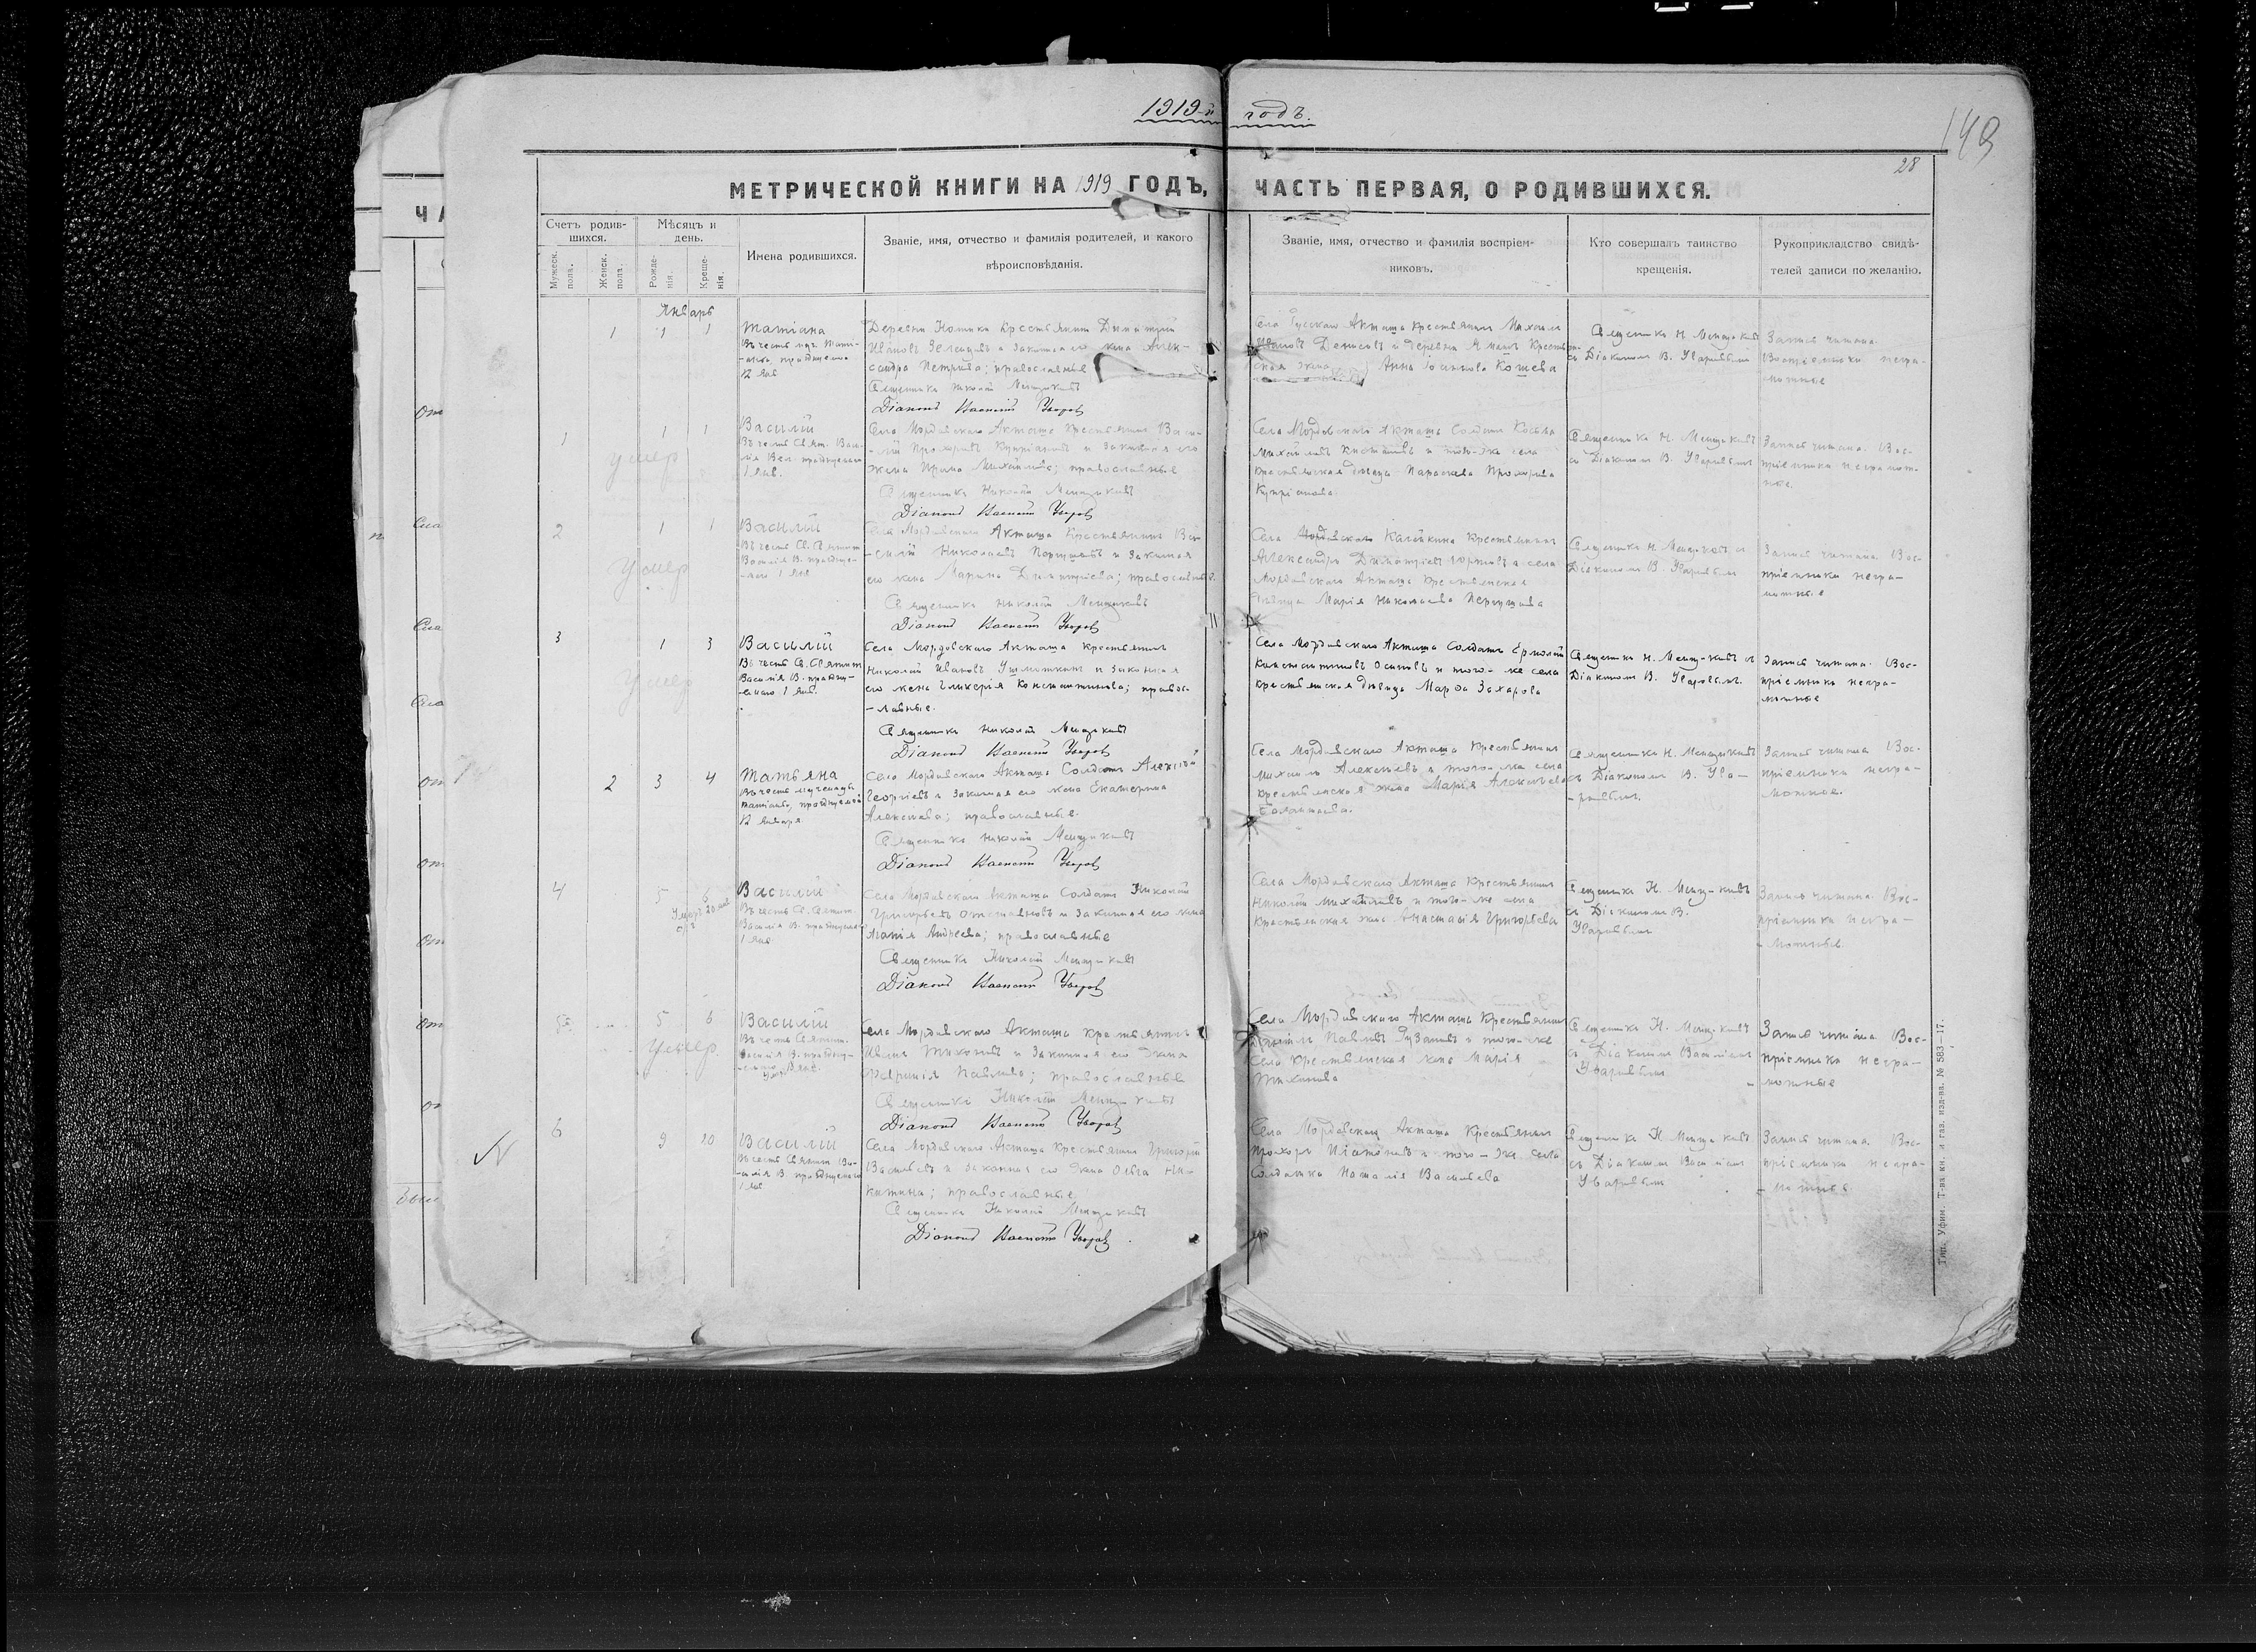 1919-й годъ.
149
28
МЕТРИЧЕСКОЙ КНИГИ НА 1919 ГОДЪ, ЧАСТЬ ПЕРВАЯ, О РОДИВШИХСЯ.
Счетъ родив-
шихся.
Мужеск. пола.
Женск. пола.
Мѣсяцъ и
день.
Рожде-
нія.
Креще-
нія.
Имена родившихся.
Званіе, имя, отчество и фамилія родителей, и какого
вѣроисповѣданія.
Званіе, имя, отчество и фамилія воспріем-
никовъ.
Кто совершалъ таинство
крещенія.
Рукоприкладство свидѣ-
телей записи по желанію.
Январь
1 1 1
Татіана
Въ честь муч. Тати-
12 Янв
Деревни крестьянинъ Димитрій
Ивановъ и законная его жена Алек-
сандра Петрова; православные
Священникъ Николай Менщиковъ
Діаконъ Василій Уваровъ
Села Русскаго Акташа крестьянинъ Михаилъ
Ивановъ Денисовъ и деревни
жена Анна
Священникъ Н. Менщиковъ
съ Діакономъ В. Уваровымъ
Запись читана.
Воспріемники негра-
мотные
1 1 1
Василій
Въ честь Свят. Васи-
лія Вел. празднуемаго
1 Янв.
умер
Села Мордовскаго Акташа крестьянинъ Васи-
лій Прохоровъ Купріяновъ и законная его
жена Ирина Михайлова; православные
Священникъ Николай Менщиковъ
Діаконъ Василій Уваровъ
Села Мордовскаго Акташа Солдатъ Косьма
Михайловъ и того-же села
крестьянская девица Параскева Прохорова
Купріянова.
Священникъ Н. Менщиковъ
съ Діакономъ В. Уваровымъ
Запись читана. Вос-
пріемники неграмот-
ные.
2 1 1
Василій
Въ честь Св. Святит.
Василія В. праздну-
емаго 1 Янв
Умер
Села Мордовскаго Акташа крестьянинъ Ва-
силій Николаевъ и законная
его жена Марина Димитріева; православные.
Священникъ Николай Менщиковъ
Діаконъ Василій Уваровъ
Села Калейкина крестьянинъ
Александръ Димитріевъ и села
Мордовскаго Акташа крестьянская
девица Марія Николаева
Священникъ Н. Менщиковъ съ
Діакономъ В. Уваровымъ
Запись читана. Вос-
пріемники негра-
мотные
3 1 3
Василій
Въ честь Св. Святит.
Василія В. праздну-
емаго 1 Янв.
Умер
Села Мордовскаго Акташа крестьянинъ
Николай Ивановъ и законная
его жена Гликерія Константинова; правос-
лавные.
Священникъ Николай Менщиковъ
Діаконъ Василій Уваровъ
Села Мордовскаго Акташа Солдатъ Ермолай
Константиновъ Осиповъ и того-же села
крестьянская девица Марѳа Захарова
Священникъ Н. Менщиковъ съ
Діакономъ В. Уваровымъ.
Запись читана. Вос-
пріемники негра-
мотные
2 3 4
Татьяна
Въ честь мученицы
Татіаны, празднуемой
12 Января
Села Мордовскаго Акташа Солдатъ Алексѣй
Георгіевъ и законная его жена Екатерина
Алексѣева; православные.
Священникъ Николай Менщиковъ
Діаконъ Василій Уваровъ
Села Мордовскаго Акташа крестьянинъ
Михаилъ Алексѣевъ и того-же села
крестьянская жена Марья Алексѣева
Священникъ Н. Менщиковъ
съ Діакономъ В. Ува-
ровымъ.
Запись читана. Вос-
пріемники негра-
мотные.
4 5 6
Василій
Въ честь Св. Святит.
Василія В. празднуемаго
1 Янв.
Села Мордовскаго Акташа Солдатъ Николай
Григорьевъ и законная его жена
Андреева; православные
Священникъ Николай Менщиковъ
Діаконъ Василій Уваровъ
Села Мордовскаго Акташа крестьянинъ
Николай Михайловъ и того-же села
крестьянская жена Анастасія Григорьева
Священникъ Н. Менщиковъ
съ Діакономъ В.
Уваровымъ
Запись читана. Вос-
пріемники негра-
мотные.
5 5 6
Василій
Умер
Села Мордовскаго Акташа крестьянинъ
Иванъ Тихоновъ и законная его жена
Павлова; православные
Священникъ Николай Менщиковъ
Діаконъ Василій Уваровъ
Села Мордовскаго Акташа крестьянинъ
Павловъ и того-же
села крестьянская жена Марія
Тихонова
Священникъ Н. Менщиковъ
съ Діакономъ Василіемъ
Уваровымъ
Запись читана. Вос-
пріемники негра-
мотные
6 9 10
Василій
Въ честь Святит. Ва-
силія В. празднуемаго
1 Янв
Села Мордовскаго Акташа крестьянинъ Григорій
Васильевъ и законная его жена Ольга Ни-
китина; православные
Священникъ Николай Менщиковъ
Діаконъ Василій Уваровъ
Села Мордовскаго Акташа крестьянинъ
Прохоръ Платоновъ и того-же села
Солдатка Наталія Васильева
Священникъ Н. Менщиковъ
съ Діакономъ Василіемъ
Уваровымъ
Запись читана. Вос-
пріемники негра-
мотные
Тип. Уфим. Т-ва кн. и газ. изд-ва. № 583—17.